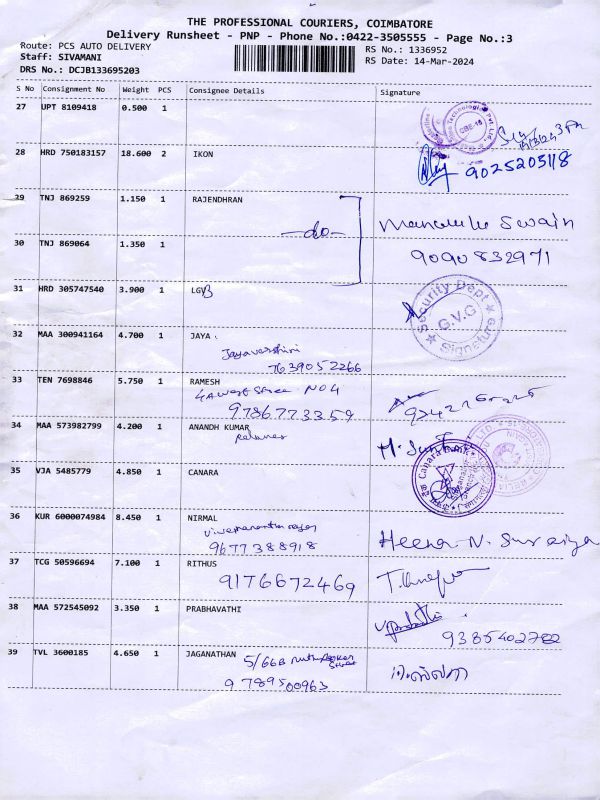 THE PROFESSIONAL COURIERS, COIMBATORE
Delivery Runsheet - PNP - Phone No.:0422-3505555 - Page No.:3
Route: PCS AUTO DELIVERY
RS No.: 1336952
Staff: SIVAMANI
RS Date: 14-Mar-2024
DRS No.: DCJB133695203
S No Consignment No Weight PCS Consignee Details Signature
27 UPT 8109418 0.500 1
28 HRD 750183157 18.600 2 IKON
9025205118
29 TNJ 869259 1.150 1 RAJENDHRAN
-do-
Swain
30 TNJ 869064 1.350 1
9090832971
31 HRD 305747540 3.900 1 LGB
Security Dept
G.V.G
Signature
32 MAA 300941164 4.700 1 JAYA.
Jayavarshini
7639052266
33 TEN 7698846 5.750 1 RAMESH
NO4
9786773359
34 MAA 573982799 4.200 1 ANANDH KUMAR
35 VJA 5485779 4.850 1 CANARA
36 KUR 6000074984 8.450 1 NIRMAL
9677388918
Heena N. Suraiya
37 TCG 50596694 7.100 1 RITHUS
9176672469
38 MAA 572545092 3.350 1 PRABHAVATHI
9385402782
39 TVL 3600185 4.650 1 JAGANATHAN
5/66B
9789500963